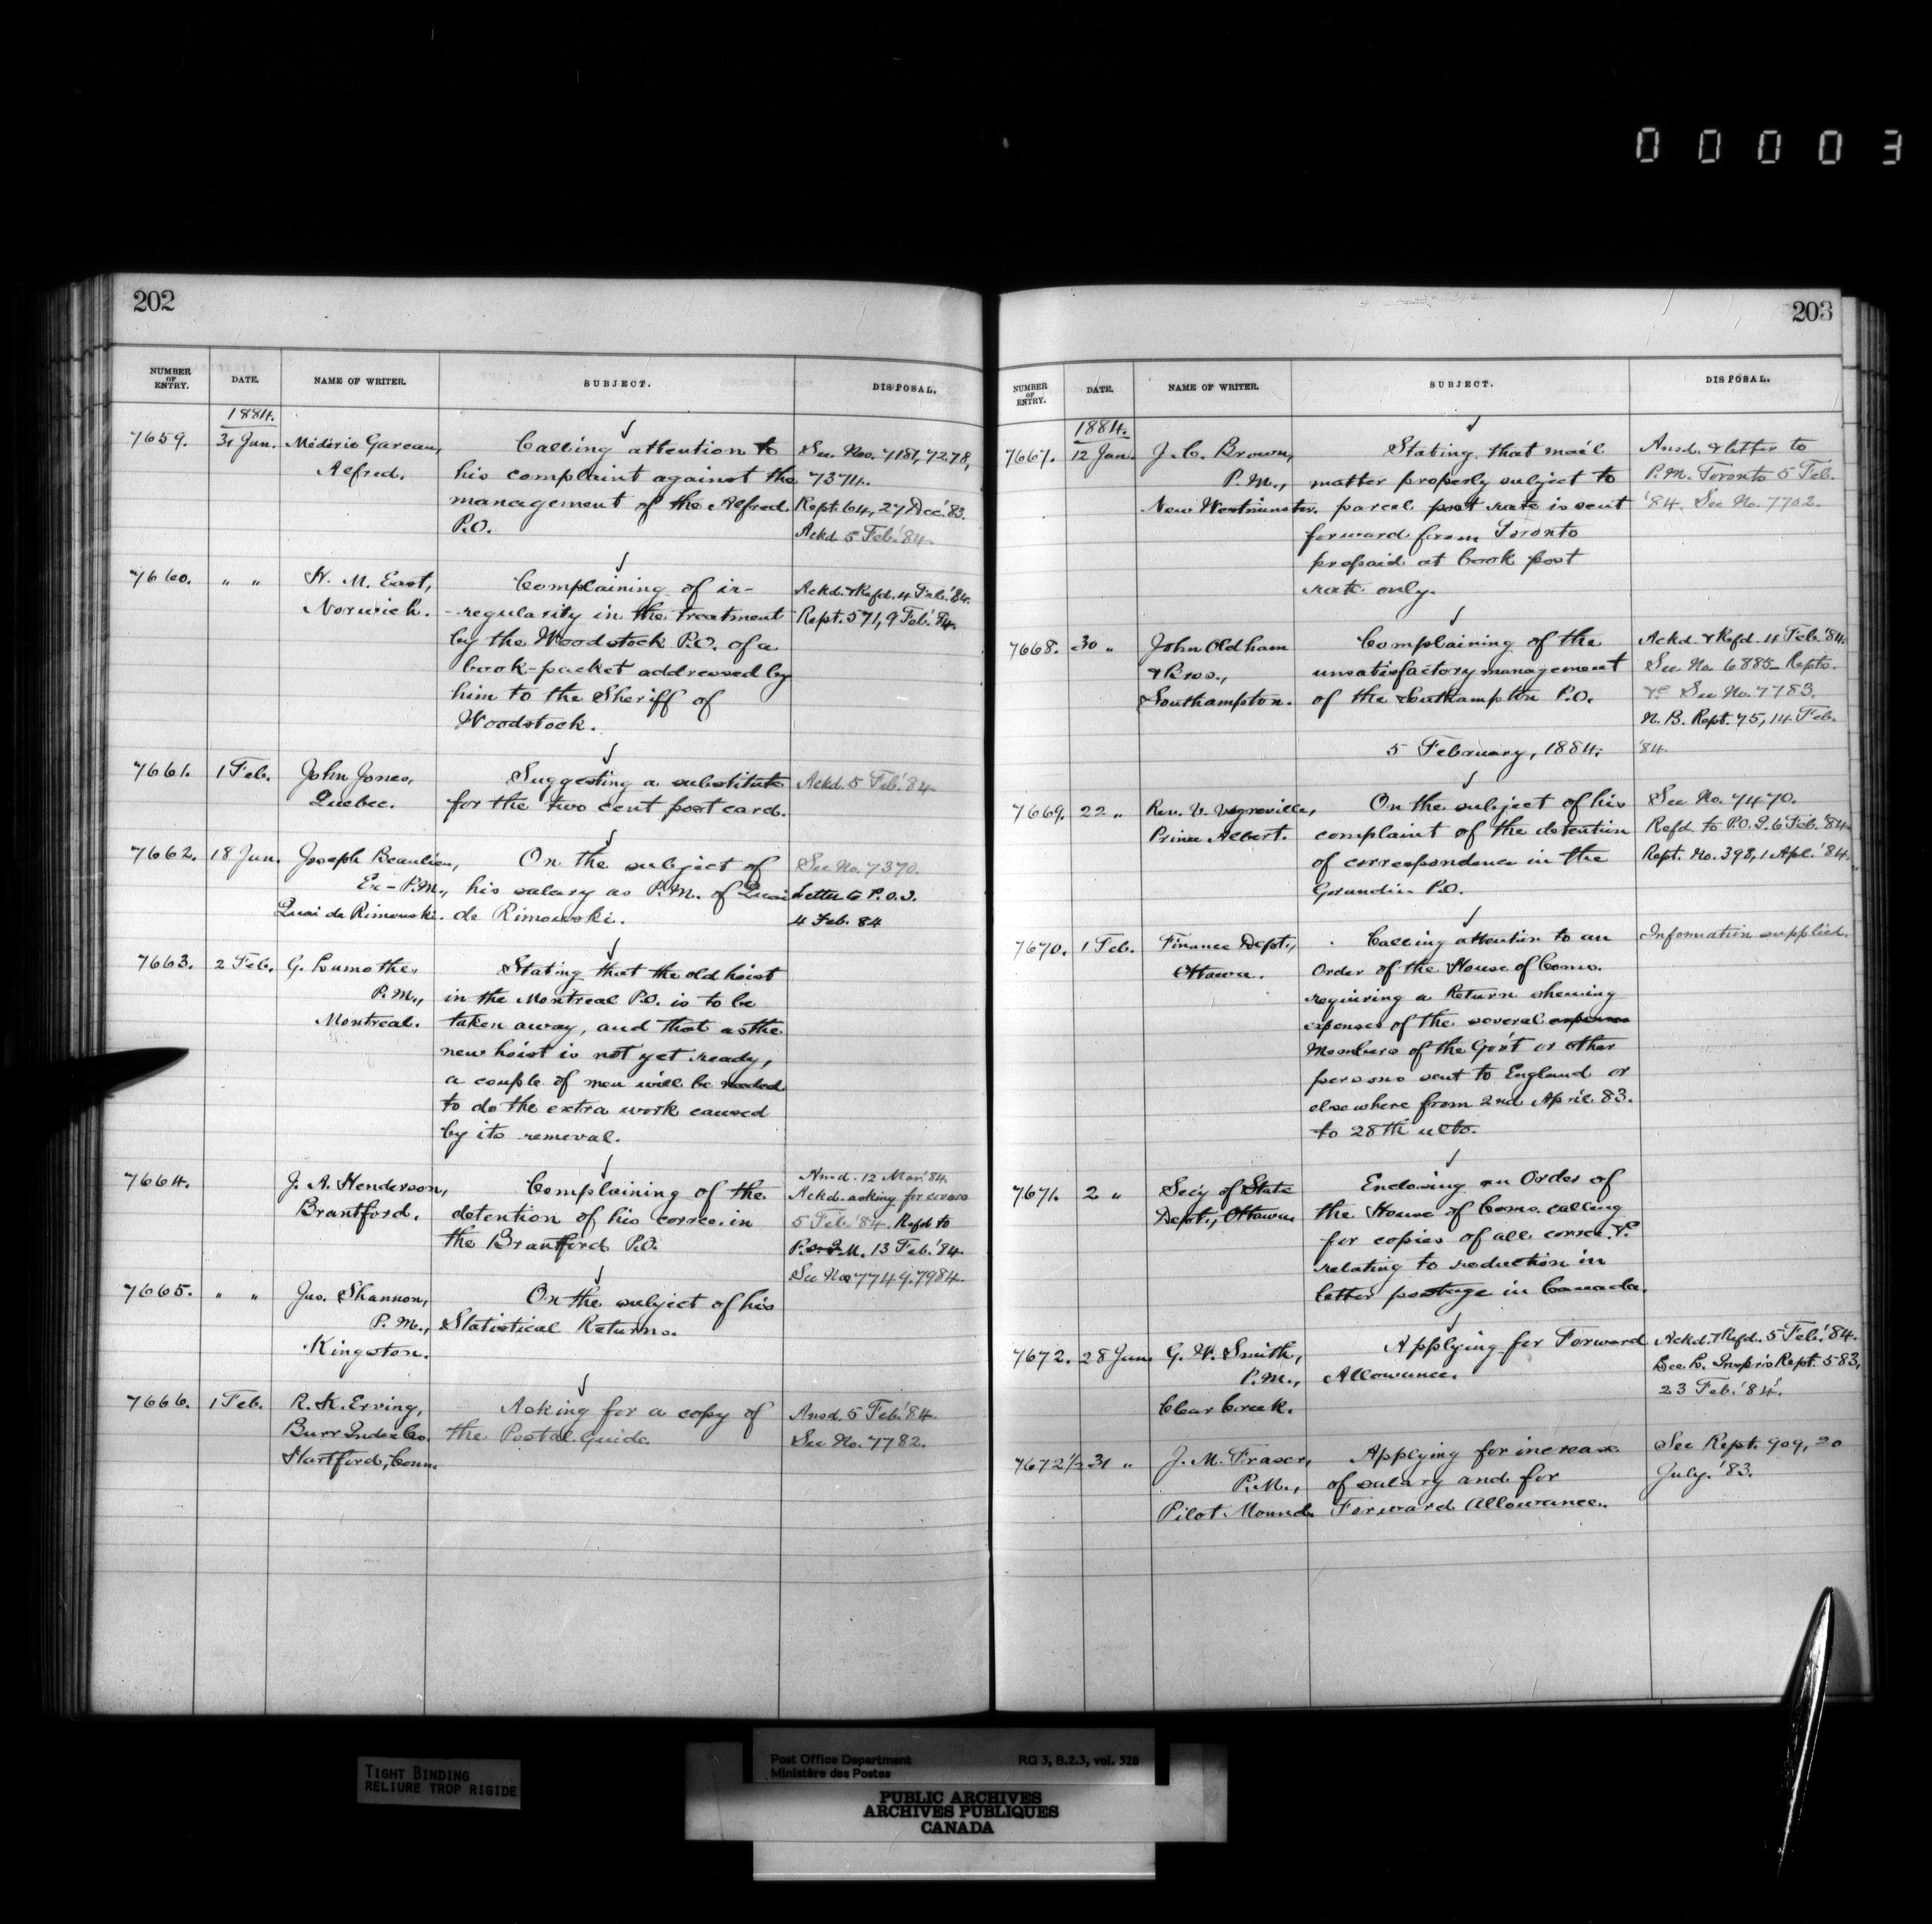 00003
202
NUMBER OF ENTRY. DATE. NAME OF WRITER. SUBJECT. DISPOSAL.
1884.
7659. 31 Jan. Médéric Gareau, Calling attention to See Nos. 7181, 7278,
Alfred. his complaint against the 7374.
management of the Alfred Rept. 64, 27 Dec. '83.
P.O. Ackd. 5 Feb. '84.
7660. " " H. M. East, Complaining of ir-
Norwich. -regularity in the treatment Ackd. & Refd. 4 Feb. '84.
by the Woodstock P.O. of a Rept. 571, 9 Feb. '84.
book-packet addressed by
him to the Sheriff of
Woodstock.
7661. 1 Feb. John Jones, Suggesting a substitute Ackd. 5 Feb. '84.
Quebec. for the two cent post card.
7662. 18 Jan. Joseph Beaulieu, On the subject of See No. 7370.
Ex-P.M., his salary as P.M. of Quai Letter to P.O.I.
Quai de Rimouski. de Rimouski. 4 Feb. 84
7663. 2 Feb. G. Lamothe, Stating that the old hoist
P.M., in the Montreal P.O. is to be
Montreal. taken away, and that as the
new hoist is not yet ready,
a couple of men will be needed
to do the extra work caused
by its removal.
7664. J. A. Henderson, Complaining of the Ansd. 12 Mar. '84.
Brantford. detention of his corrce. in Ackd. asking for covers
the Brantford P.O. 5 Feb. '84. Refd to
P.M. 13 Feb. '84.
See Nos 7749, 7984.
7665. " " Jas. Shannon, On the subject of his
P.M., Statistical Returns.
Kingston.
7666. 1 Feb. R. K. Erving, Asking for a copy of Ansd. 5 Feb. '84.
Burr Index Co. the Postal Guide. See No. 7782.
Hartford, Conn.
203
NUMBER OF ENTRY. DATE. NAME OF WRITER. SUBJECT. DISPOSAL.
1884.
7667. 12 Jan. J. C. Brown, Stating that mail Ansd. & letter to
P.M., matter properly subject to P.M. Toronto 5 Feb.
New Westminster. parcel post rate is sent '84. See No. 7702.
forward from Toronto
prepaid at book post
rate only.
7668. 30 " John Oldham Complaining of the Ackd. & Refd. 4 Feb. '84.
& Bros., unsatisfactory management See No. 6885 - Repts.
Southampton. of the Southampton P.O. &c See No. 7783.
N.B. Rept. 75, 14 Feb.
5 February, 1884. '84.
7669. 22 " Rev. V. Vegreville, On the subject of his See No. 7470.
Prince Albert. complaint of the detention Refd. to P.O.I. 6 Feb. '84.
of correspondence in the Rept. No. 398, 1 Apl. '84.
Grandin P.O.
7670. 1 Feb. Finance Dept., Calling attention to an Information supplied.
Ottawa. Order of the House of Coms.
requiring a Return shewing
expenses of the several expenses
Members of the Gov't or other
persons sent to England or
elsewhere from 2nd April 83.
to 28th ulto.
7671. 2 " Sec'y of State Enclosing an Order of
Dept., Ottawa the House of Coms. calling
for copies of all corrce. &c
relating to reduction in
letter postage in Canada.
7672. 28 Jan. G. W. Smith, Applying for Forward Ackd. & Refd. 5 Feb. '84.
P.M., Allowance. See L. Insp'rs Rept. 583,
Clear Creek. 23 Feb. '84.
7672½ 31 " J. M. Fraser, Applying for increase See Rept. 909, 20
P.M., of salary and for July. '83.
Pilot Mound Forward Allowance.
TIGHT BINDING
RELIURE TROP RIGIDE
Post Office Department RG 3, B.2.3, vol. 528
Ministère des Postes
PUBLIC ARCHIVES
ARCHIVES PUBLIQUES
CANADA